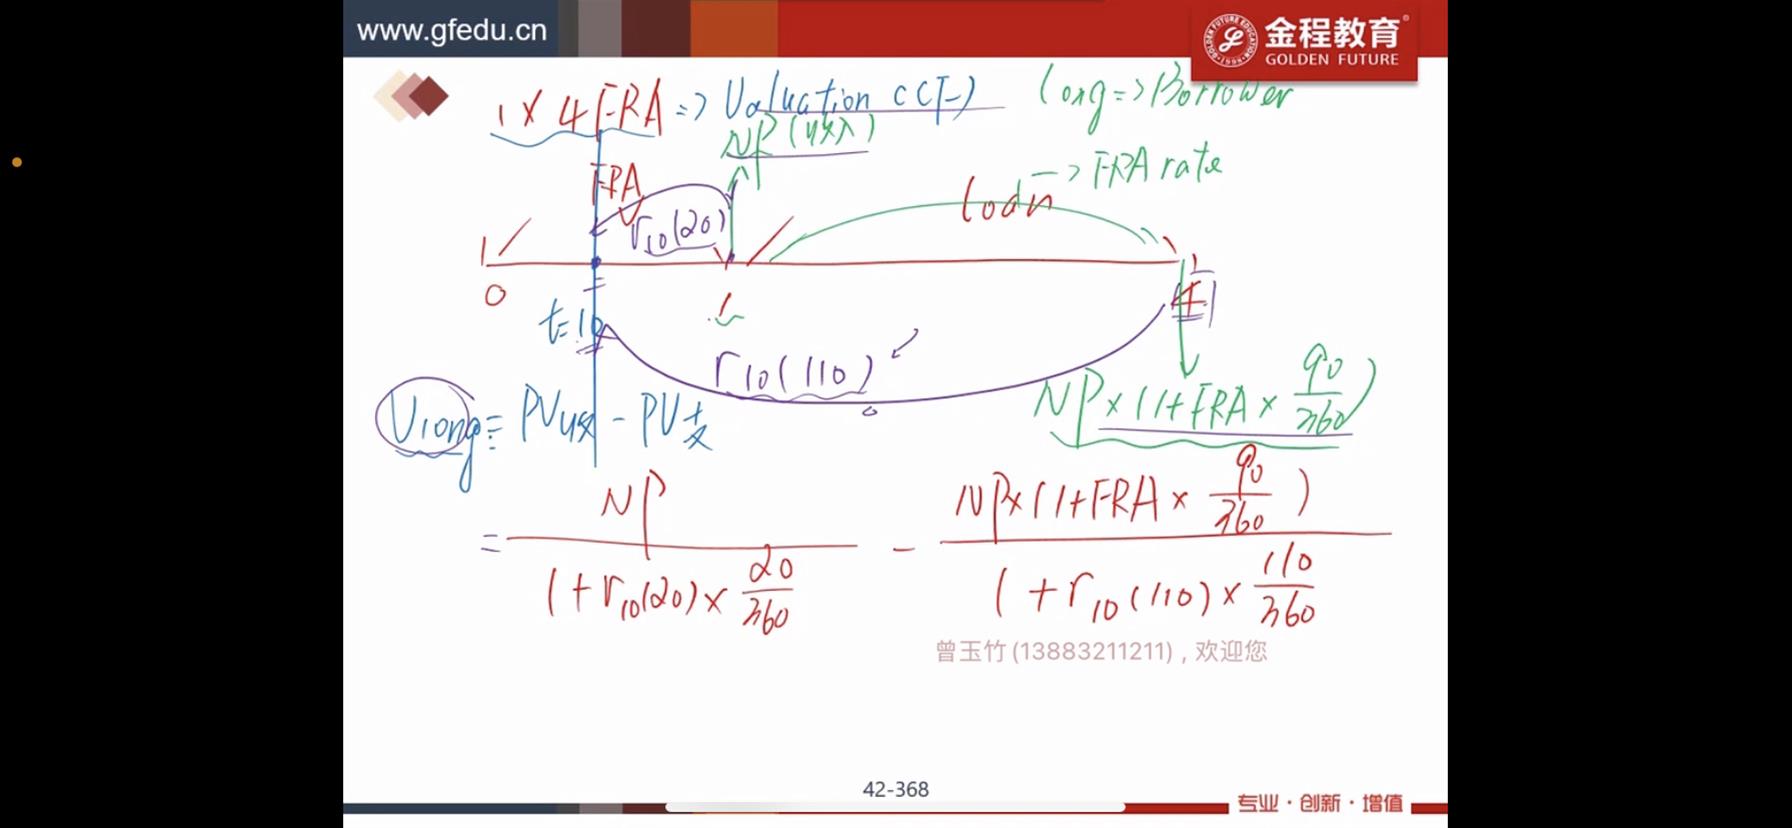 www.gfedu.cn
金程教育
GOLDEN FUTURE
1 × 4 FRA => Valuation
long => Borrower
NP (收入)
FRA
loan -> FRA rate
r10(20)
0
1
4
t=10
r10(110)
NP × (1+FRA × 90/360)
Vlong = PV收 - PV支
= NP / (1+r10(20) × 20/360) - NP×(1+FRA × 90/360) / (1+r10(110) × 110/360)
曾玉竹(13883211211),欢迎您
42-368
专业·创新·增值